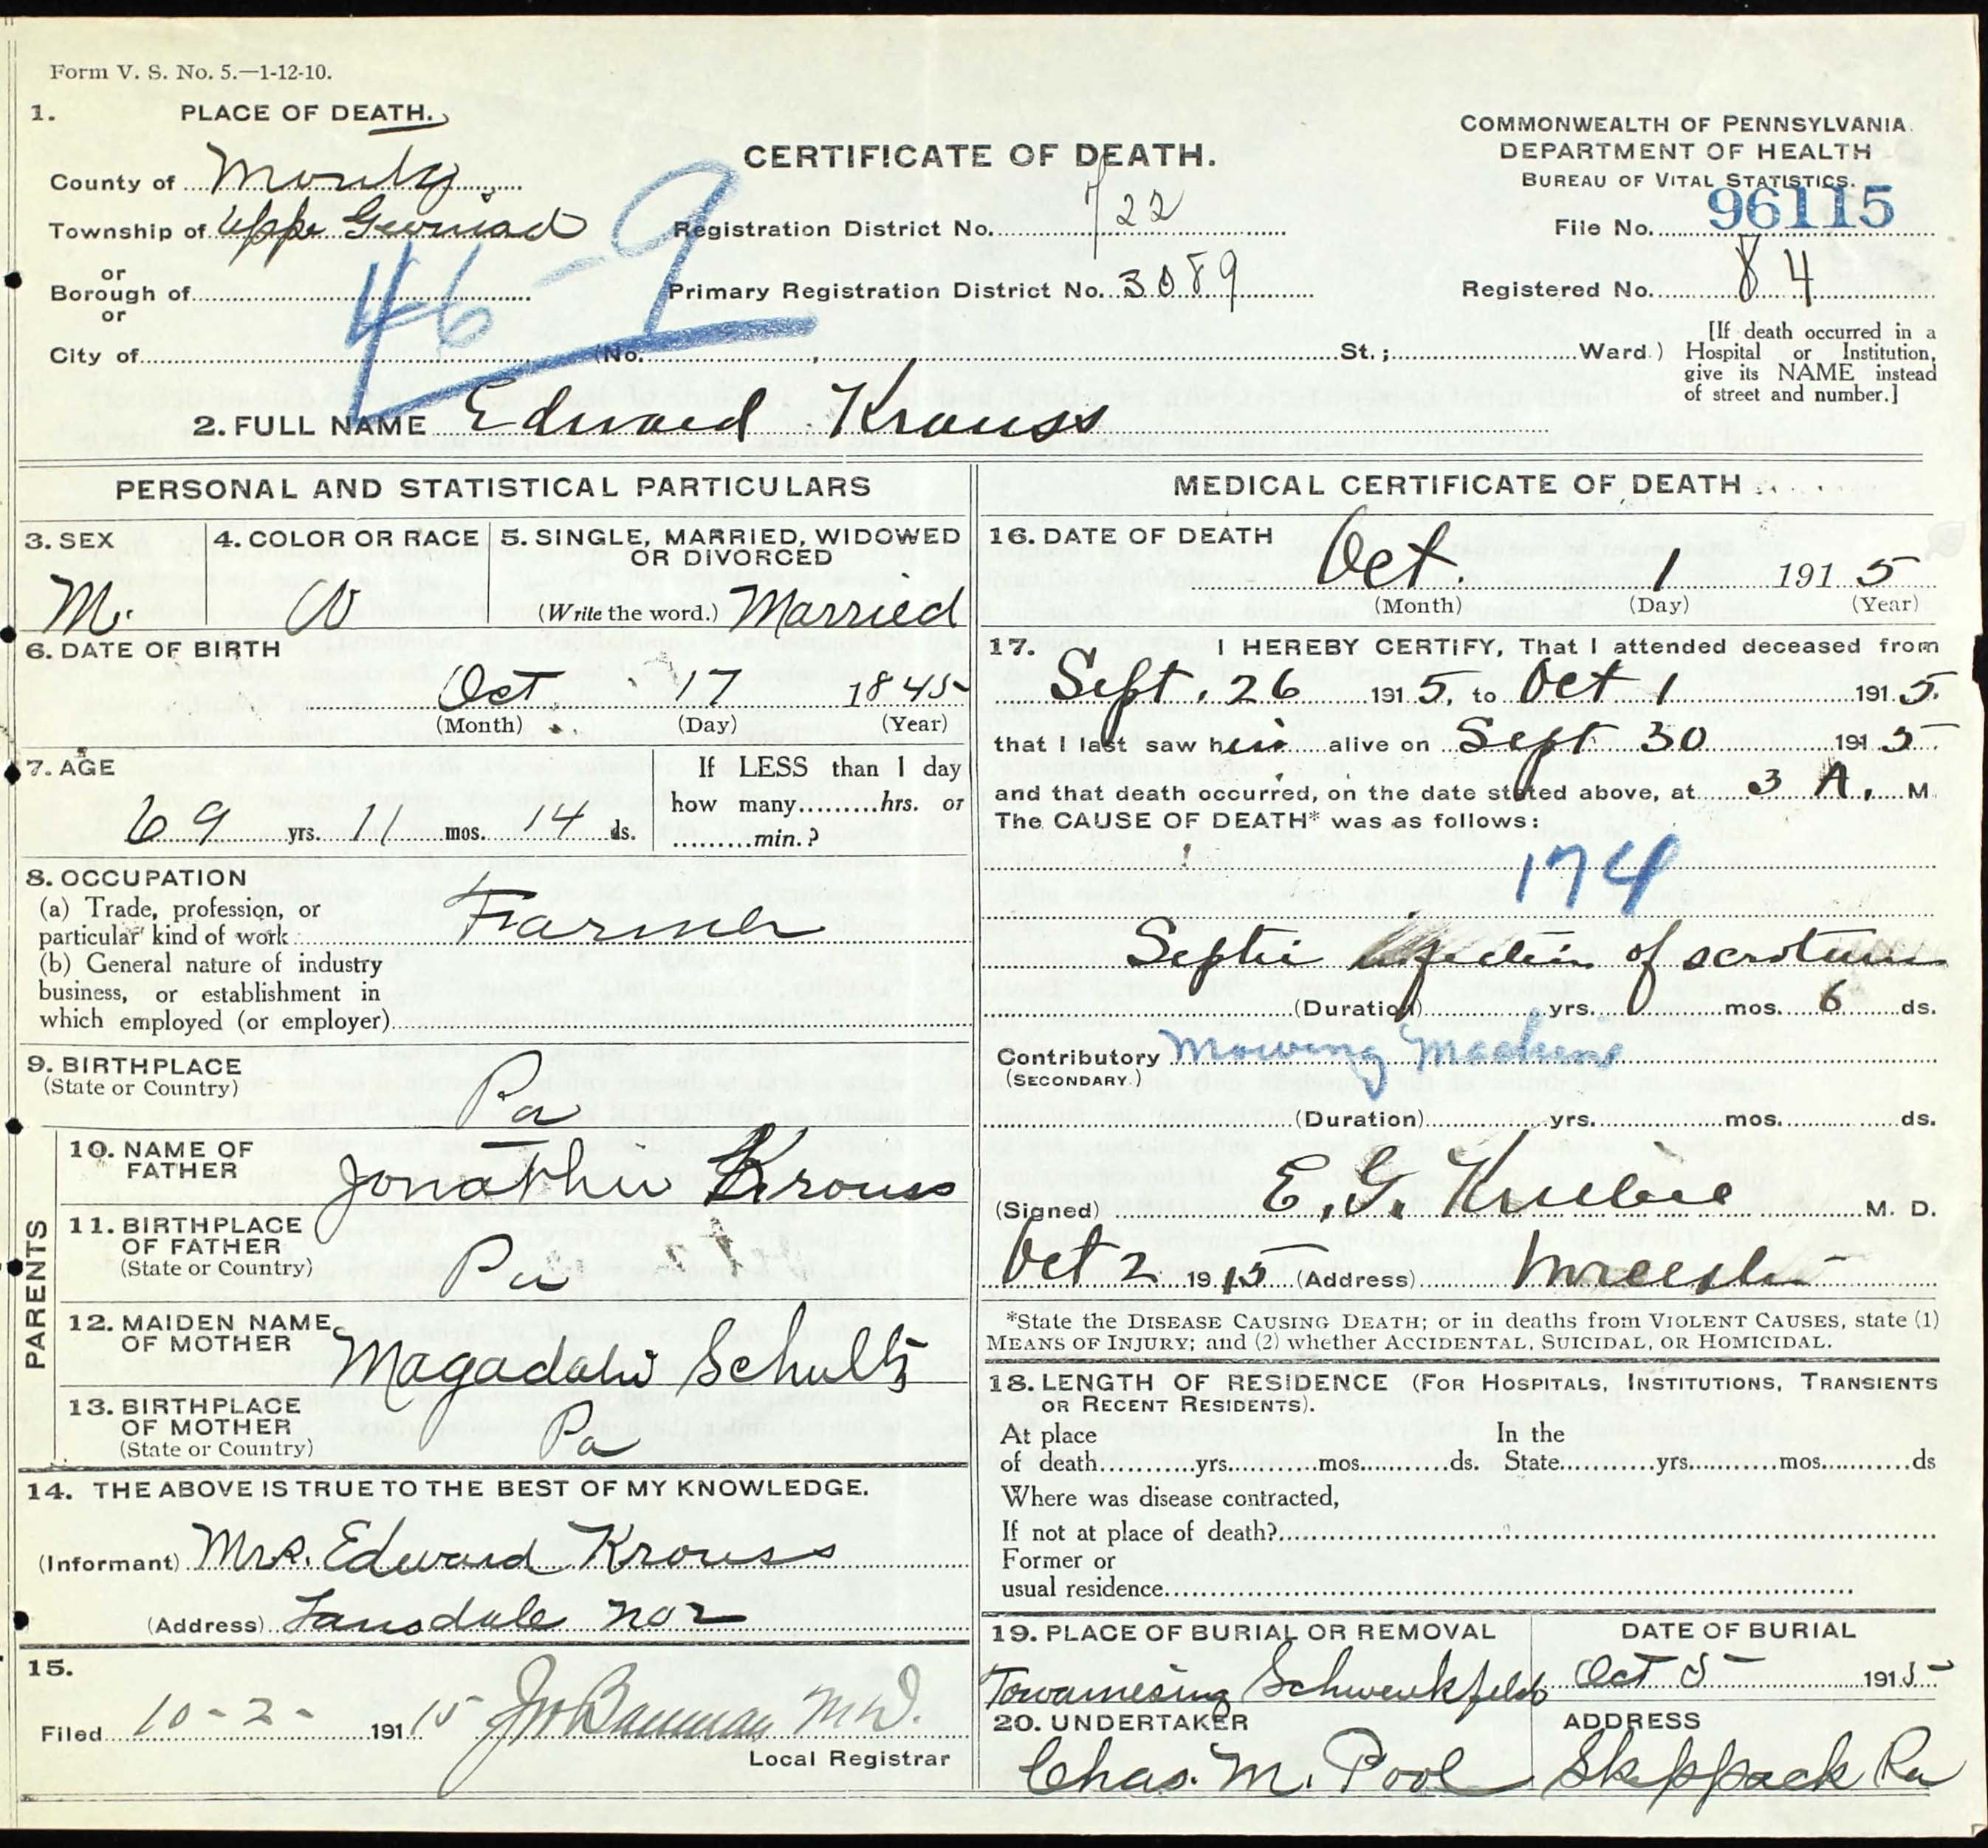 Form V. S. No. 5.—1-12-10.
1. PLACE OF DEATH.
County of Montg
Township of Uppe Gwiniad
or
Borough of
or
City of (No. , St. ; Ward.)
46-9
CERTIFICATE OF DEATH.
Registration District No. 722
Primary Registration District No. 3089
COMMONWEALTH OF PENNSYLVANIA.
DEPARTMENT OF HEALTH
BUREAU OF VITAL STATISTICS.
File No. 96115
Registered No. 84
[If death occurred in a
Hospital or Institution,
give its NAME instead
of street and number.]
2. FULL NAME Edward Krauss
PERSONAL AND STATISTICAL PARTICULARS
3. SEX
M.
4. COLOR OR RACE
W
5. SINGLE, MARRIED, WIDOWED
OR DIVORCED
(Write the word.) Married
6. DATE OF BIRTH
Oct 17 1845
(Month) (Day) (Year)
7. AGE
69 yrs. 11 mos. 14 ds.
If LESS than 1 day
how many hrs. or
min.?
8. OCCUPATION
(a) Trade, profession, or
particular kind of work Farmer
(b) General nature of industry
business, or establishment in
which employed (or employer)
9. BIRTHPLACE
(State or Country)
Pa
PARENTS
10. NAME OF
FATHER
Jonathn Krouss
11. BIRTHPLACE
OF FATHER
(State or Country)
Pa
12. MAIDEN NAME
OF MOTHER
Magadalu Schultz
13. BIRTHPLACE
OF MOTHER
(State or Country)
Pa
14. THE ABOVE IS TRUE TO THE BEST OF MY KNOWLEDGE.
(Informant) Mrs. Edward Krouss
(Address) Lansdale no 2
15.
Filed 10-2- 191 15
M.D.
Local Registrar
MEDICAL CERTIFICATE OF DEATH
16. DATE OF DEATH
Oct. 1 1915
(Month) (Day) (Year)
17. I HEREBY CERTIFY, That I attended deceased from
Sept. 26 1915, to Oct 1 1915.
that I last saw him alive on Sept 30 1915.
and that death occurred, on the date stated above, at 3 A. M.
The CAUSE OF DEATH* was as follows:
174
Septic infection of scrotum
(Duration) yrs. mos. 6 ds.
Contributory Mowing Machine
(SECONDARY.)
(Duration) yrs. mos. ds.
(Signed) E. G. M. D.
Oct 2 1915 (Address)
*State the DISEASE CAUSING DEATH; or in deaths from VIOLENT CAUSES, state (1)
MEANS OF INJURY; and (2) whether ACCIDENTAL, SUICIDAL, OR HOMICIDAL.
18. LENGTH OF RESIDENCE (FOR HOSPITALS, INSTITUTIONS, TRANSIENTS
OR RECENT RESIDENTS).
At place In the
of death yrs. mos. ds. State yrs. mos. ds
Where was disease contracted,
If not at place of death?
Former or
usual residence
19. PLACE OF BURIAL OR REMOVAL
Towamesing Schwenkfeld
DATE OF BURIAL
Oct 5 1915
20. UNDERTAKER
Chas. M. Pool
ADDRESS
Skippack Pa